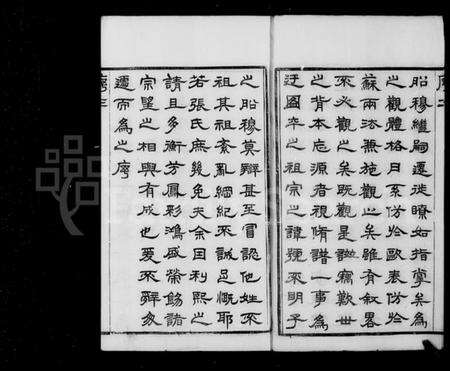 序二
昭穆繼嗣遷徙瞭如指掌矣為
之觀體格曰系仿於歐表仿於
蘇兩法兼施觀止矣雖有叙畧
不必觀之矣既觀是譜竊歎世
之背本忘源者視脩譜一事為
迂圖卒之祖宗之諱號不明子
之昭穆莫辯甚至冒認他姓不
祖其祖紊亂綱紀不誠足慨耶
若張氏庶幾免夫余因利熙之
請且多衡芳鳳彩鴻盛榮錫諸
宗望之相與有成也爰不辭多
遷而為之序
序三